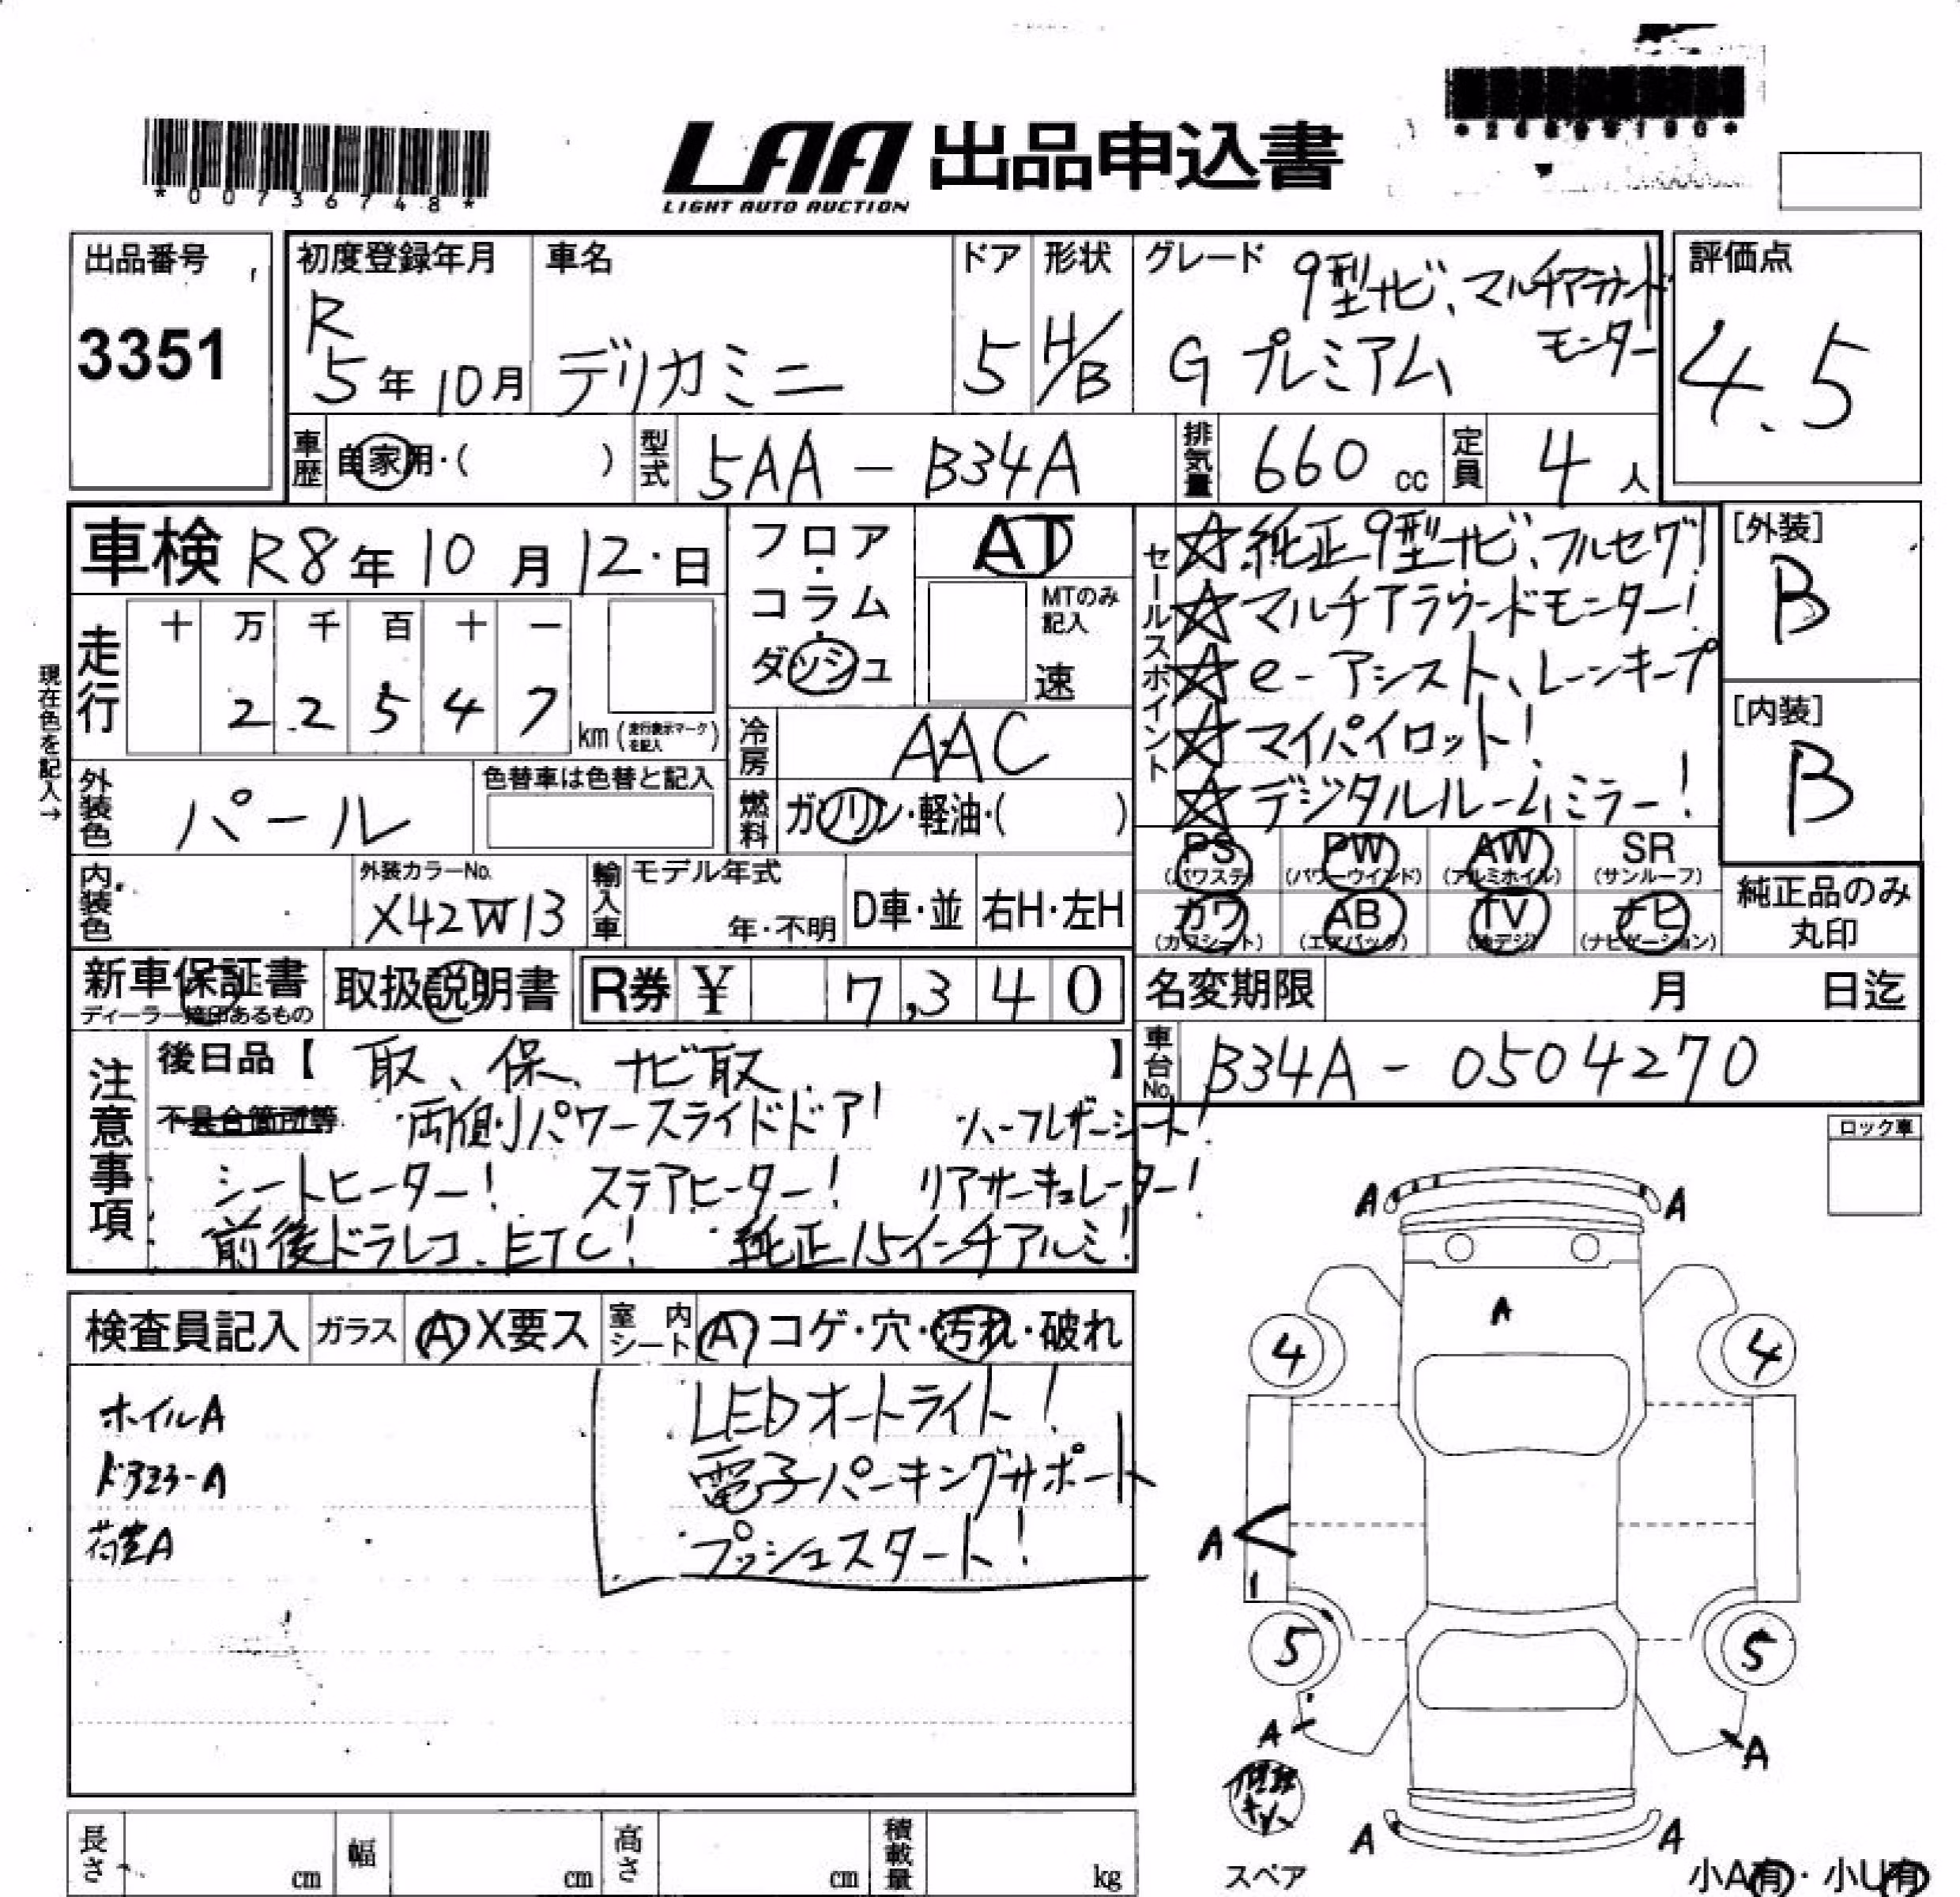 *00736748*
LAA 出品申込書
LIGHT AUTO AUCTION
出品番号
3351
初度登録年月
R
5年10月
車名
デリカミニ
ドア
5
形状
H/B
グレード
9型ナビ、マルチアラウンド
モニター
G プレミアム
評価点
4.5
車歴
自家用・( )
型式
5AA - B34A
排気量
660 cc
定員
4人
車検 R8年10月12日
走行
十 万 千 百 十 一
2 2 5 4 7
km(走行表示マークを記入)
現在色を記入→
外装色
パール
色替車は色替と記入
内装色
外装カラーNo.
X42W13
フロア・コラム・ダッシュ
AT
MTのみ記入
速
冷房
AAC
燃料
ガソリン・軽油・( )
輸入車
モデル年式
年・不明
D車・並
右H・左H
セールスポイント
☆純正9型ナビ、フルセグ!
☆マルチアラウンドモニター!
☆e-アシスト、レーンキープ
☆マイパイロット!
☆デジタルルームミラー!
[外装]
B
[内装]
B
PS (パワステ) PW (パワーウインド) AW (アルミホイル) SR (サンルーフ)
カワ (カワシート) AB (エアバック) TV (地デジ) ナビ (ナビゲーション)
純正品のみ
丸印
新車保証書
ディーラー捺印あるもの
取扱説明書
R券 ¥ 7,340
名変期限 月 日迄
車台No.
B34A - 0504270
注意事項
後日品【 取、保、ナビ取 】
不具合箇所等 両側パワースライドドア! ハーフレザーシート!
シートヒーター! ステアヒーター! リアサーキュレーター!
前後ドラレコ、ETC! 純正15インチアルミ!
ロック車
検査員記入
ガラス
A X要ス
室内シート
A コゲ・穴・汚れ・破れ
ホイルA
ドアミラーA
荷室A
LEDオートライト!
電子パーキングサポート
プッシュスタート!
A A
A
4 4
A
5 5
A A
A A
スペア
小A有・小U有
長さ cm
幅 cm
高さ cm
積載量 kg